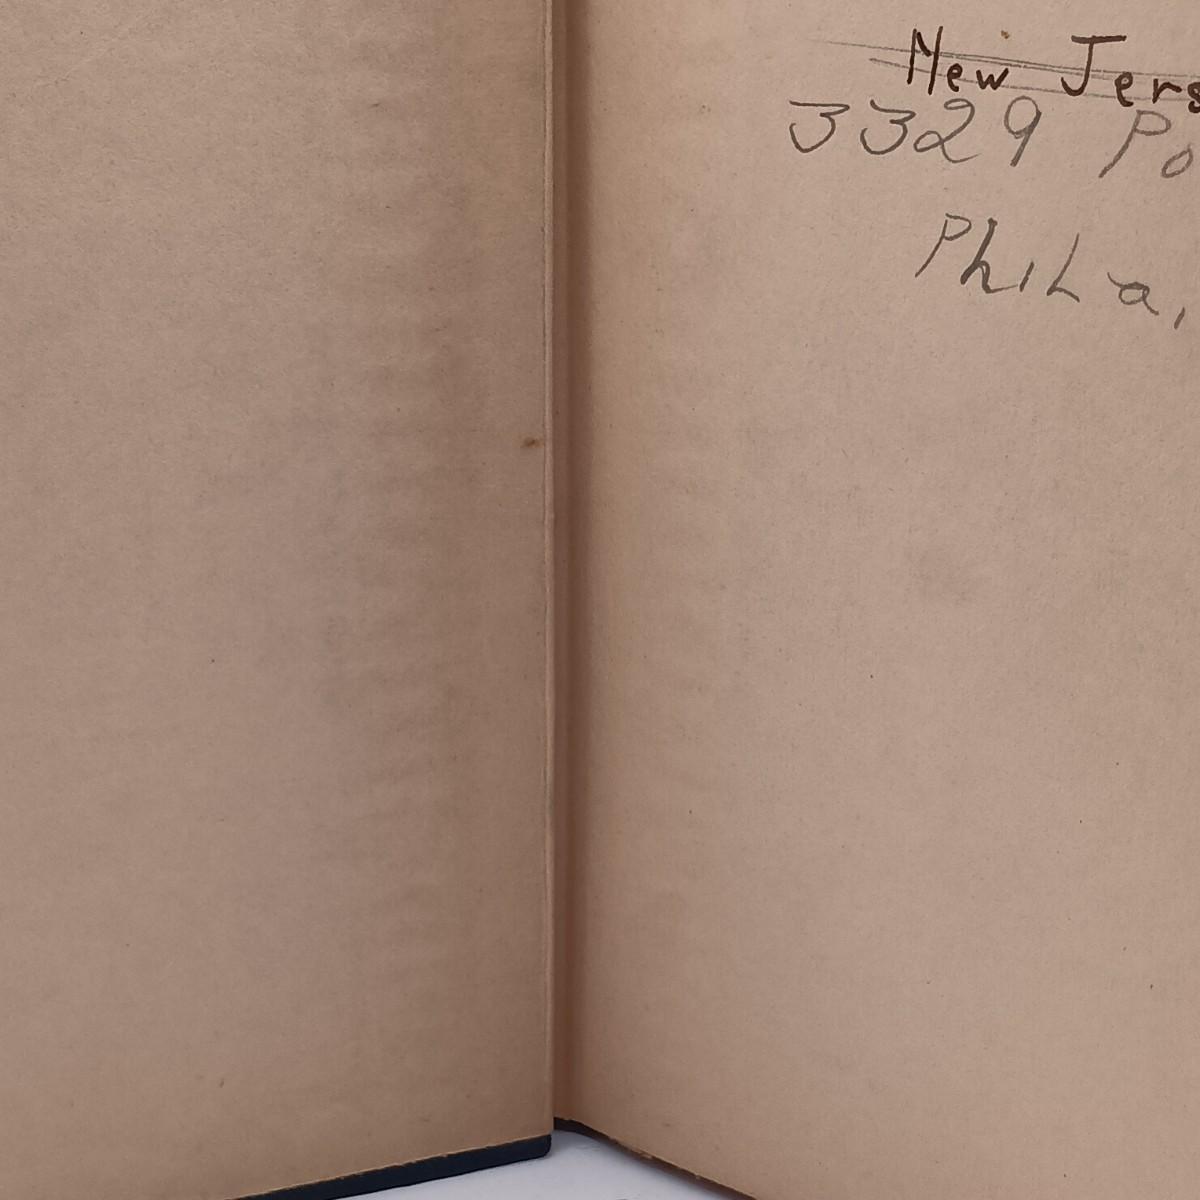 New Jers
3329 Po
Phila,